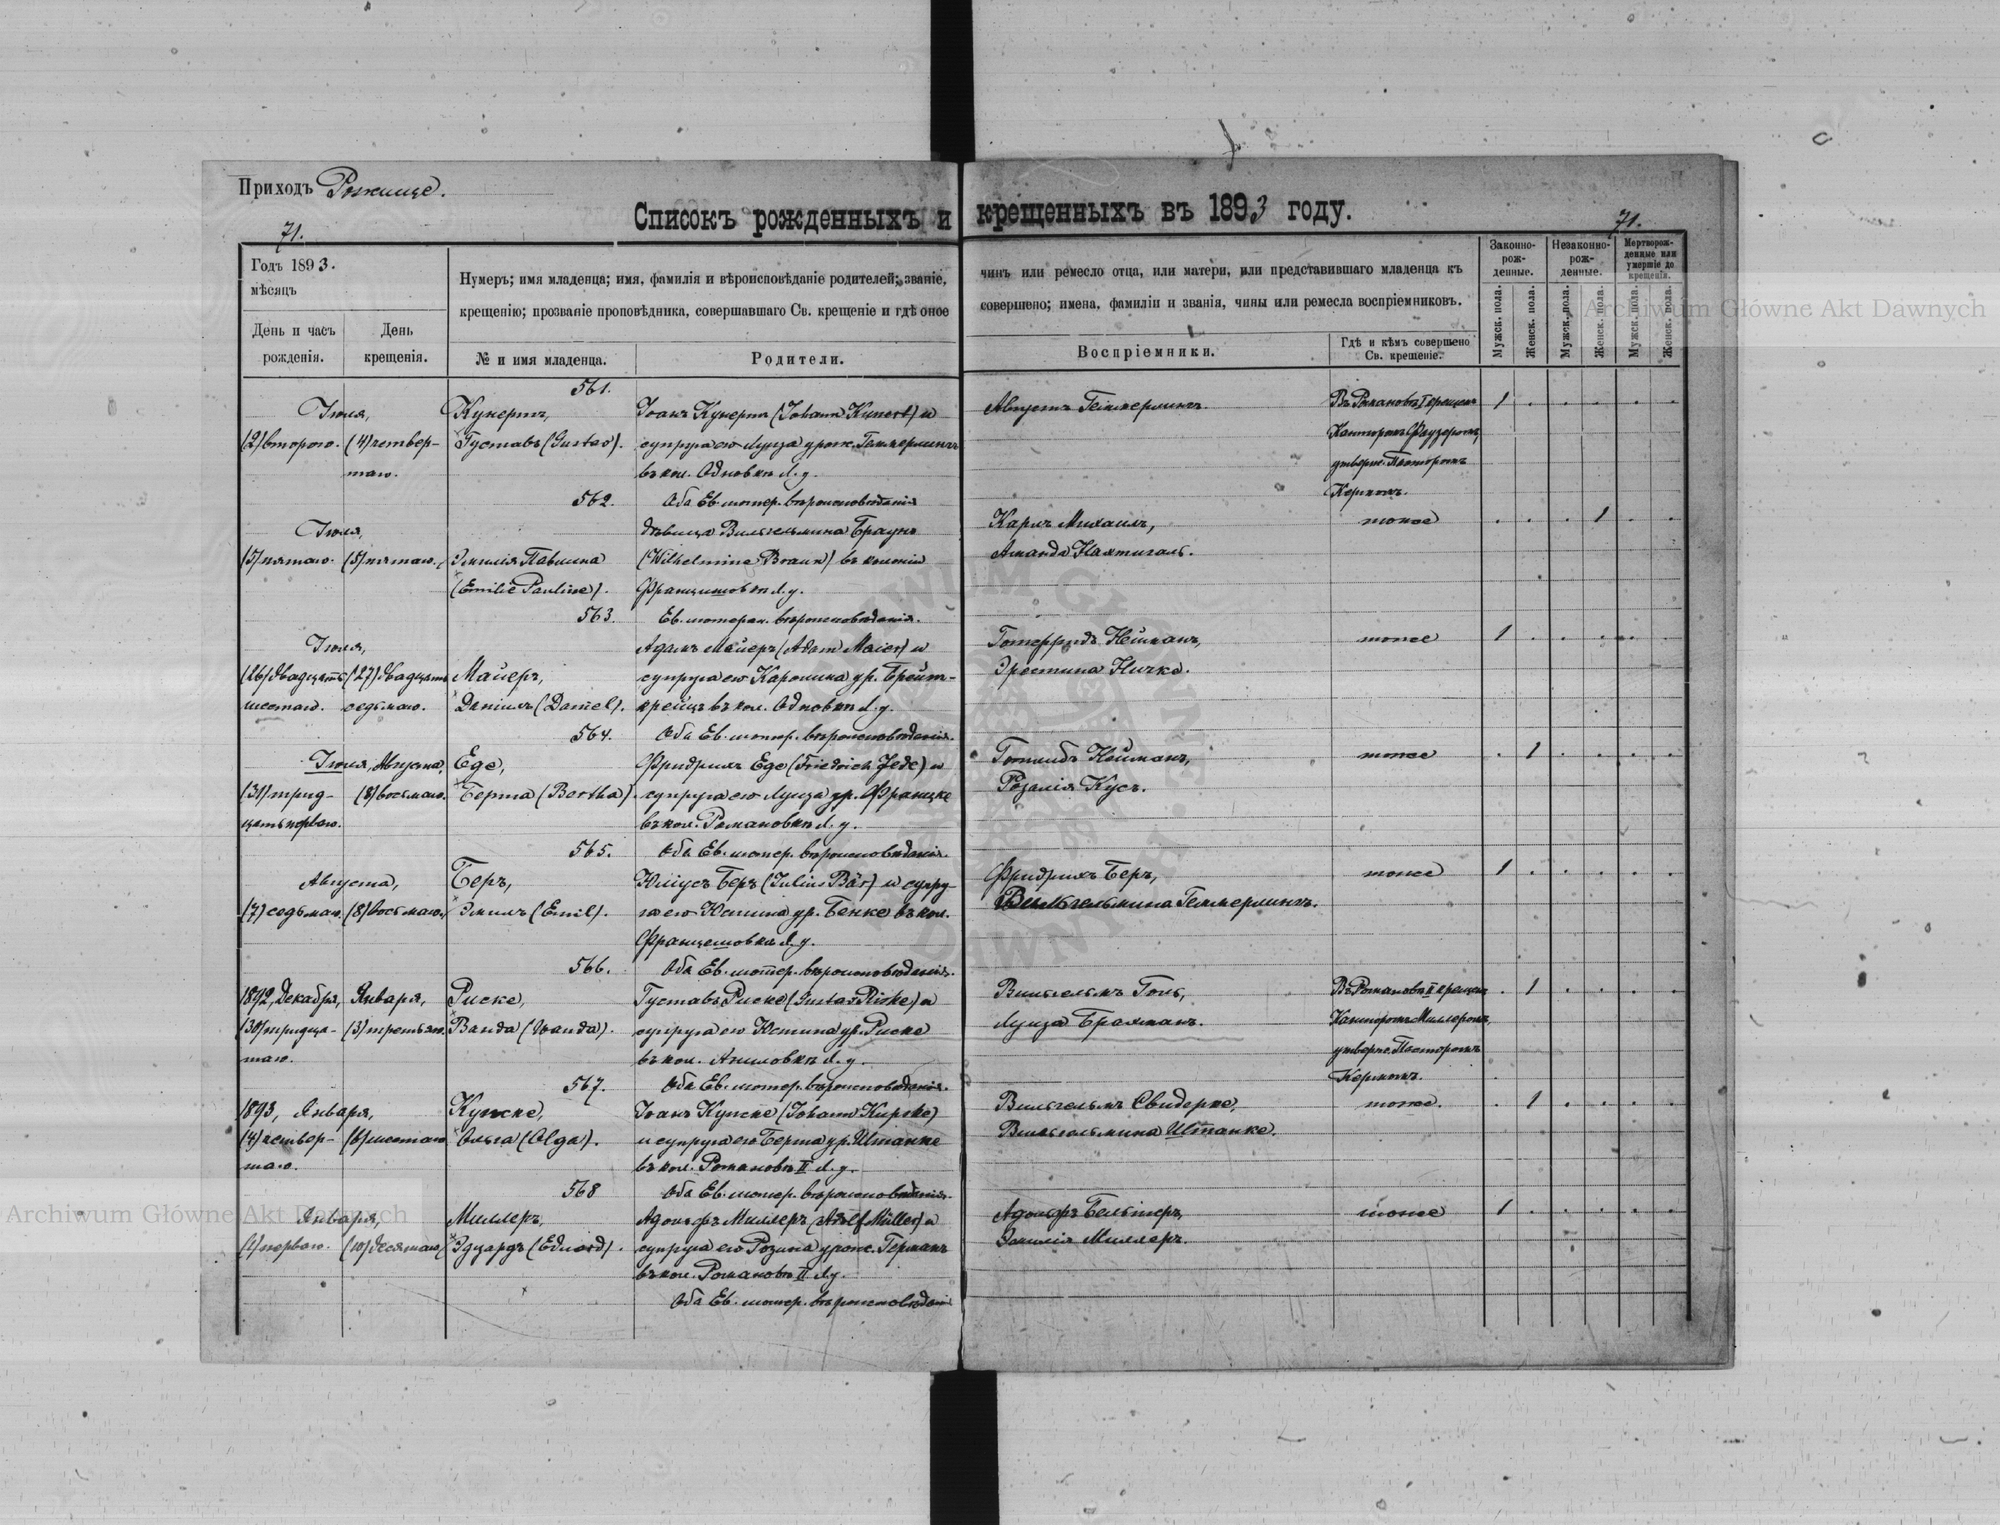 Приходъ Рожище.
Списокъ рожденныхъ и крещенныхъ въ 1893 году.
71.
71.
Годъ 1893.
мѣсяцъ
День и часъ рожденія.
День крещенія.
Нумеръ; имя младенца; имя, фамилія и вѣроисповѣданіе родителей; званіе,
крещенію; прозваніе проповѣдника, совершавшаго Св. крещеніе и гдѣ оное
№ и имя младенца.
Родители.
чинъ или ремесло отца, или матери, или представившаго младенца къ
совершено; имена, фамиліи и званія, чины или ремесла воспріемниковъ.
Воспріемники.
Гдѣ и кѣмъ совершено
Св. крещеніе.
Законно-
рож-
денные.
Незаконно-
рож-
денные.
Мертворож-
денные или
умершіе до
крещенія.
Мужск. пола.
Женск. пола.
Мужск. пола.
Женск. пола.
Мужск. пола.
Женск. пола.
561.
Іюля,
(2) второго. (4) четвер-
таго.
Кунертъ,
Густавъ (Gustav).
Іоанъ Кунертъ (Johann Kunert) и
супруга его Луиза урож. Геммерлингъ
въ кол. Одновкѣ Л. у.
Оба Ев. лютер. вѣроисповѣданія
Августъ Геммерлингъ.
Въ Романовкѣ I крещен
Канторомъ
утвержд. Пасторомъ
Кермомъ.
1
562.
Іюля,
(5) пятаго. (5) пятаго.
Эмилія Павлина
(Emilie Pauline).
дѣвица Вильгельмина Браунъ
(Wilhelmine Braun) въ колоніи
Францишовкѣ Л. у.
Ев. лютеран. вѣроисповѣданія.
Карлъ Михаилъ,
Аманда Нахтигаль.
тоже
1
563.
Іюля,
(26) двадцать (27) двадцать
шестаго. седьмаго.
Майеръ,
Даніилъ (Daniel).
Адамъ Майеръ (Adam Maier) и
супруга его Каролина ур. Брейт-
крейцъ въ кол. Одновкѣ Л. у.
Оба Ев. лютер. вѣроисповѣданія.
Готфридъ Нейманъ,
Эрестина Ничке.
тоже
1
564.
Іюля, Августа,
(31) трид- (8) восьмаго.
цать перваго.
Еде,
Берта (Bertha).
Фридрихъ Еде (Friedrich Jede) и
супруга его Луиза ур. Францке
въ кол. Романовкѣ Л. у.
Оба Ев. лютер. вѣроисповѣданія.
Готлибъ Нейманъ,
Розалія Кусъ.
тоже
1
565.
Августа,
(7) седьмаго. (8) восьмаго.
Беръ,
Эмилъ (Emil).
Юліусъ Беръ (Julius Bär) и супру-
га его Юстина ур. Бенке въ кол.
Францешовкѣ Л. у.
Оба Ев. лютер. вѣроисповѣданія.
Фридрихъ Беръ,
Вильгельмина Геммерлингъ.
тоже
1
566.
1892, Декабря, Января,
(30) тридца- (3) третьяго.
таго.
Риске,
Ванда (Wanda).
Густавъ Риске (Gustav Riske) и
супруга его Юстина ур. Риске
въ кол. Л. у.
Оба Ев. лютер. вѣроисповѣданія.
Вильгельмъ Голь,
Луиза Брахманъ.
Въ Романовкѣ II крещен
Канторомъ Миллеромъ,
утвержд. Пасторомъ
Кермомъ.
1
567.
1893, Января,
(4) четвер- (6) шестаго
таго.
Купске,
Ольга (Olga).
Іоанъ Купске (Johann Kupske)
и супруга его Берта ур. Штанке
въ кол. Романовкѣ II Л. у.
Оба Ев. лютер. вѣроисповѣданія.
Вильгельмъ Свидерке,
Вильгельмина Штанке.
тоже.
1
568
Января,
(1) перваго. (10) десятаго
Миллеръ,
Эдуардъ (Eduard).
Адольфъ Миллеръ (Adolf Müller) и
супруга его Розина урож. Германъ
въ кол. Романовкѣ II Л. у.
Оба Ев. лютер. вѣроисповѣдані
Адольфъ Бельтеръ,
Эмилія Миллеръ.
тоже
1
Archiwum Główne Akt Dawnych
Archiwum Główne Akt Dawnych